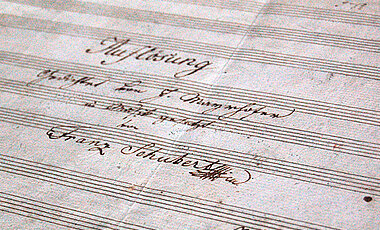 Auflösung
Gedichtet von J. Mayrhofer
in Musik gesetzt
von
Franz Schubert